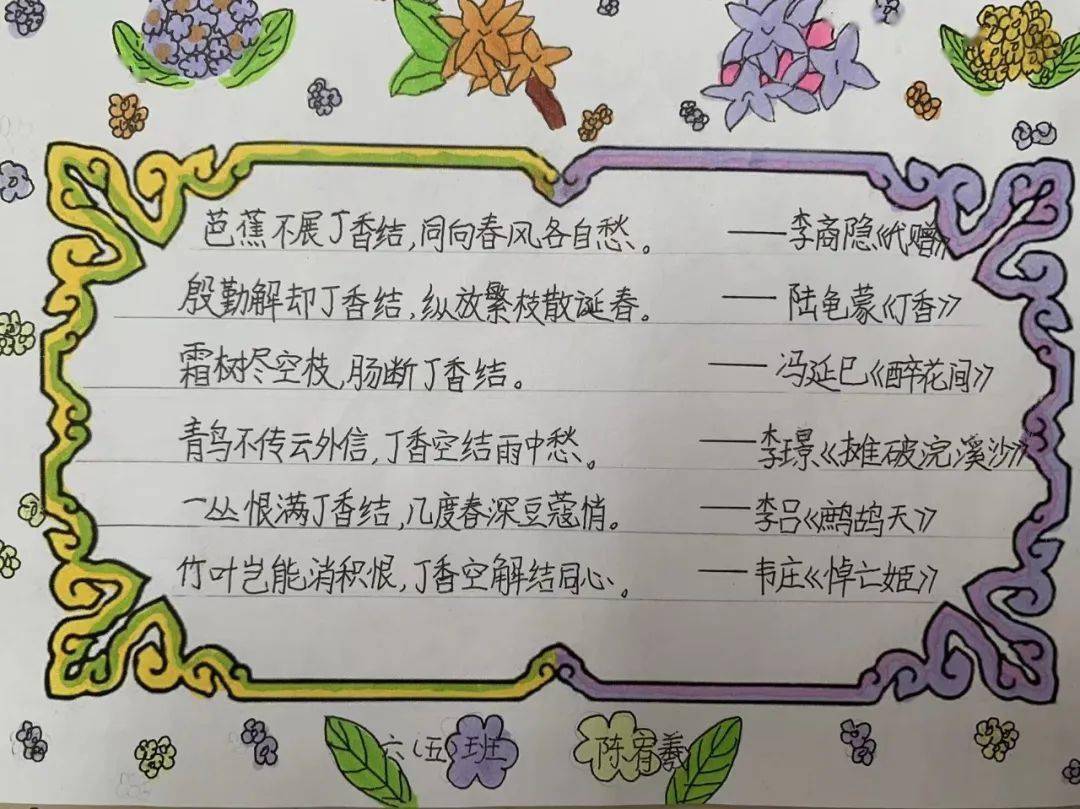 芭蕉不展丁香结,同向春风各自愁。 ——李商隐《代赠》
殷勤解却丁香结,纵放繁枝散诞春。 ——陆龟蒙《丁香》
霜树尽空枝,肠断丁香结。 ——冯延巳《醉花间》
青鸟不传云外信,丁香空结雨中愁。 ——李璟《摊破浣溪沙》
一丛恨满丁香结,几度春深豆蔻悄。 ——李吕《鹧鸪天》
竹叶岂能消积恨,丁香空解结同心。 ——韦庄《悼亡姬》
六(五)班 陈宥羲